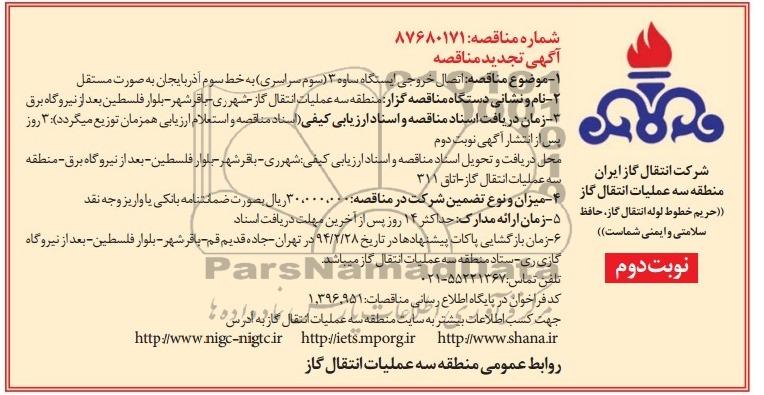 شماره مناقصه: ۸۷۶۸۰۱۷۱
آگهی تجدید مناقصه
۱-موضوع مناقصه: اتصال خروجی ایستگاه ساوه ۳ (سوم سراسری) به خط سوم آذربایجان به صورت مستقل
۲-نام و نشانی دستگاه مناقصه گزار: منطقه سه عملیات انتقال گاز-شهرری-باقرشهر-بلوار فلسطین بعد از نیروگاه برق
۳-زمان دریافت اسناد مناقصه و اسناد ارزیابی کیفی (اسناد مناقصه و استعلام ارزیابی همزمان توزیع میگردد): ۳ روز
پس از انتشار آگهی نوبت دوم
محل دریافت و تحویل اسناد مناقصه و اسناد ارزیابی کیفی: شهرری-باقرشهر-بلوار فلسطین-بعد از نیروگاه برق-منطقه
سه عملیات انتقال گاز-اتاق ۳۱۱
۴-میزان و نوع تضمین شرکت در مناقصه: ۳۰،۰۰۰،۰۰۰ ریال بصورت ضمانتنامه بانکی یا واریز وجه نقد
۵-زمان ارائه مدارک: حداکثر ۱۴ روز پس از آخرین مهلت دریافت اسناد
۶-زمان بازگشایی پاکات پیشنهادها در تاریخ ۹۴/۲/۲۸ در تهران-جاده قدیم قم-باقرشهر-بلوار فلسطین-بعد از نیروگاه
گازی ری-ستاد منطقه سه عملیات انتقال گاز میباشد.
تلفن تماس: ۵۵۲۲۱۳۶۷-۰۲۱
کد فراخوان در پایگاه اطلاع رسانی مناقصات: ۱،۳۹۶،۹۵۱
جهت کسب اطلاعات بیشتر به سایت منطقه سه عملیات انتقال گاز به آدرس
http://www.nigc-nigtc.ir http://iets.mporg.ir http://www.shana.ir
روابط عمومی منطقه سه عملیات انتقال گاز
شرکت انتقال گاز ایران
منطقه سه عملیات انتقال گاز
((حریم خطوط لوله انتقال گاز، حافظ
سلامتی و ایمنی شماست))
نوبت دوم
ParsNamadData